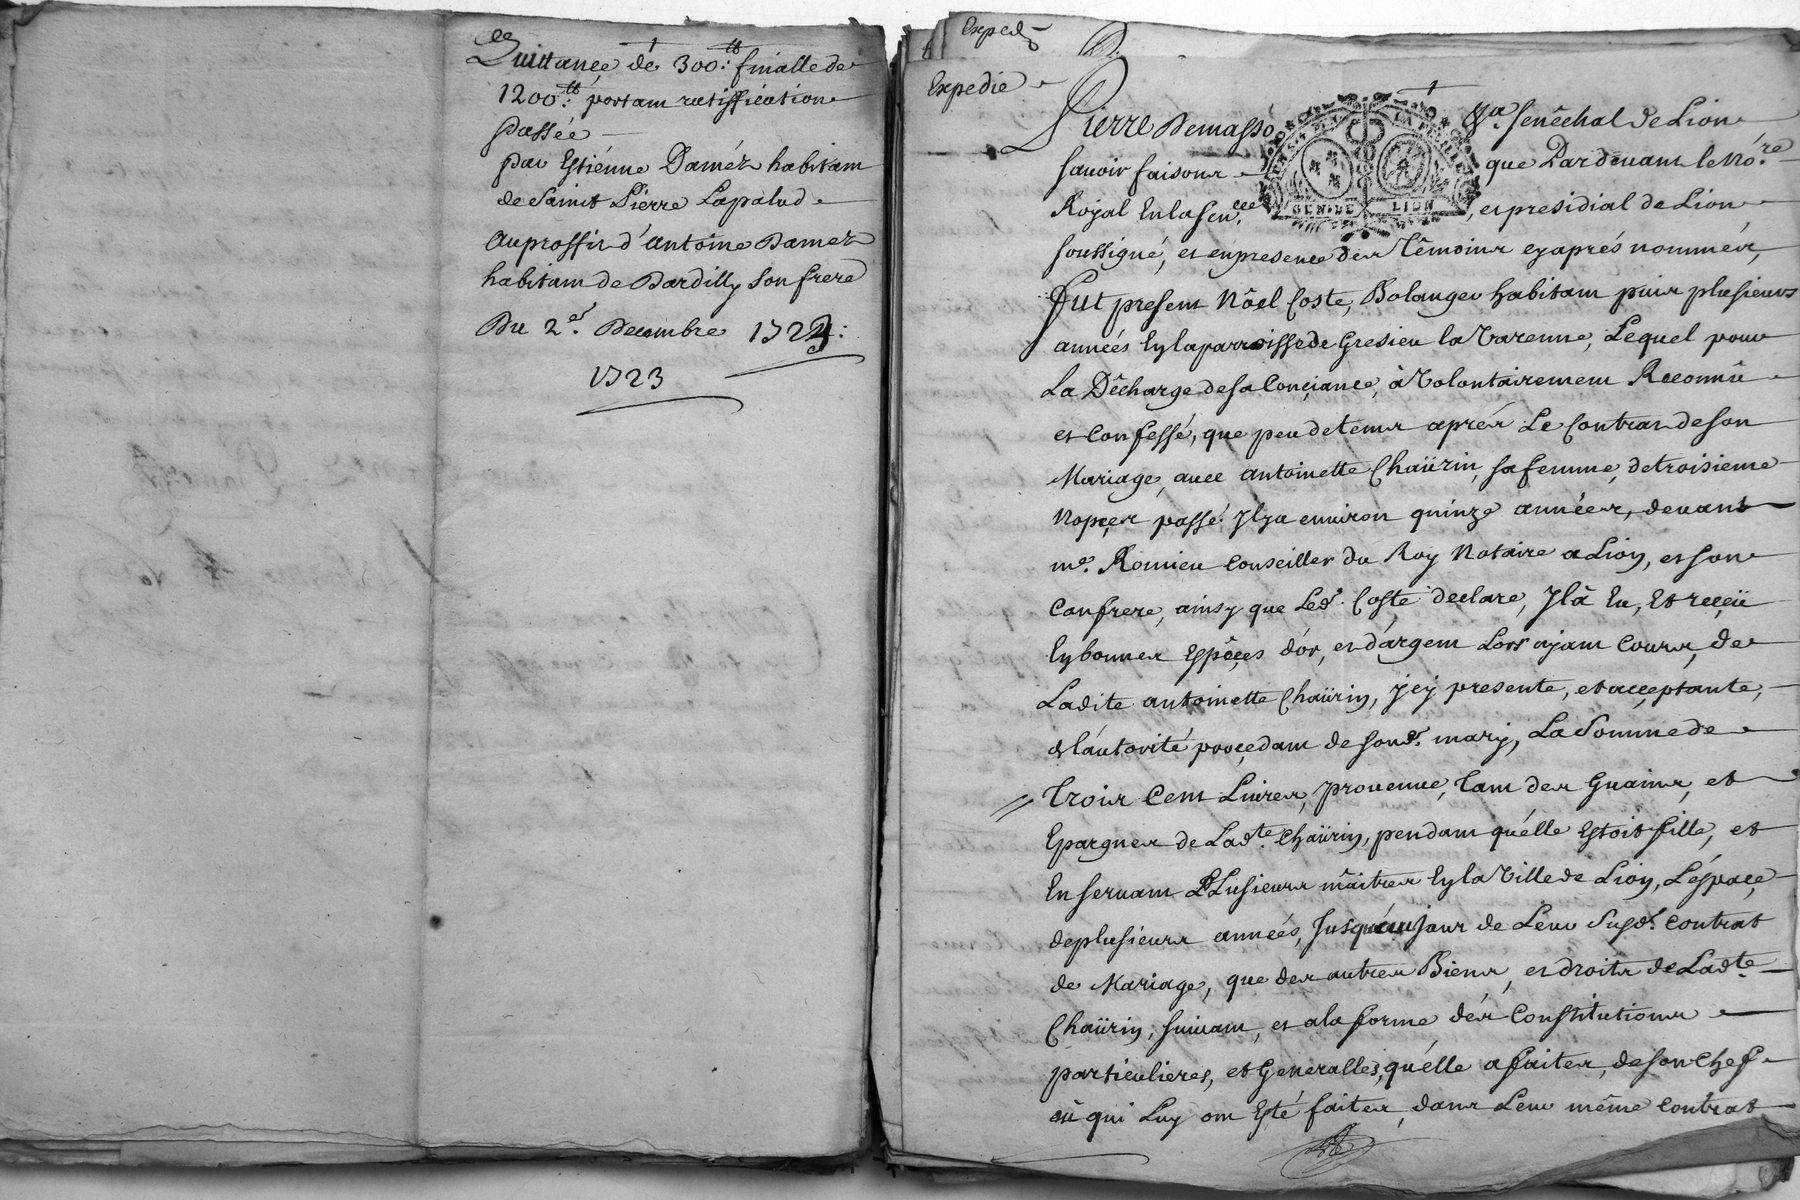 Quittance de 300:ᵗᵗ finalle de
1200:ᵗᵗ portant rattiffication
passée
par Estienne Daméz habitant
de Saint Pierre Lapalud
Au proffit d'antoine Daméz
habitant de Dardilly son frere
Du 2.ᵉ Decembre 1724:
1723
Exped
Expedie
Pierre Demasso Sen̂echal de Lion
savoir faisons que Pardevant le No.ʳᵉ
GEN·DE LION
Royal En la Sen.ᶜᵉᵉ et presidial de Lion
soussigné, et en presence des Témoins cy aprés nomméz,
fut present Nôel Coste, Bolanger habitant puis plusieurs
années En la parroisse de Gresieu la Varenne, Lequel pour
La Décharge de sa Conçiance, à Volontairement Reconnû
et Confessé, que peu de tems aprés Le Contrat de son
Mariage, avec antoinette Chaürin, sa femme, de troisieme
Nopçes passé Il y a environ quinze années, devant
mᵉ. Romieu Conseiller du Roy Notaire a Lion, et son
Confrere, ainsy que Ledᵗ. Coste declare, Il à Eu, Et reçeü
En bonnes Espéçes d'or, et d'argent Lors ayant Cours, de
Ladite antoinette Chaürin, Icy presente, et acçeptante,
de l'autorité proçedant de sondᵗ. mary, La Somme de
Trois Cent Livres, provenue, Tant des Guains, et
Epargnes de Ladᵗᵉ. Chaürin, pendant qu'elle Estoit fille, et
En servant Plusieurs mâitres En la Ville de Lion, L'éspaçe
de plusieurs années, Jusqu'au jour de Leur Susdᵗ. Contrat
de Mariage, que des autres Biens, et droits de Ladᵗᵉ.
Chaürin, suivant, et a la forme dés Constitutions
particulieres, et Generalles, qu'elle a faites, de son Chef
où qui Luy ont Esté faites, dans Leur même Contrat